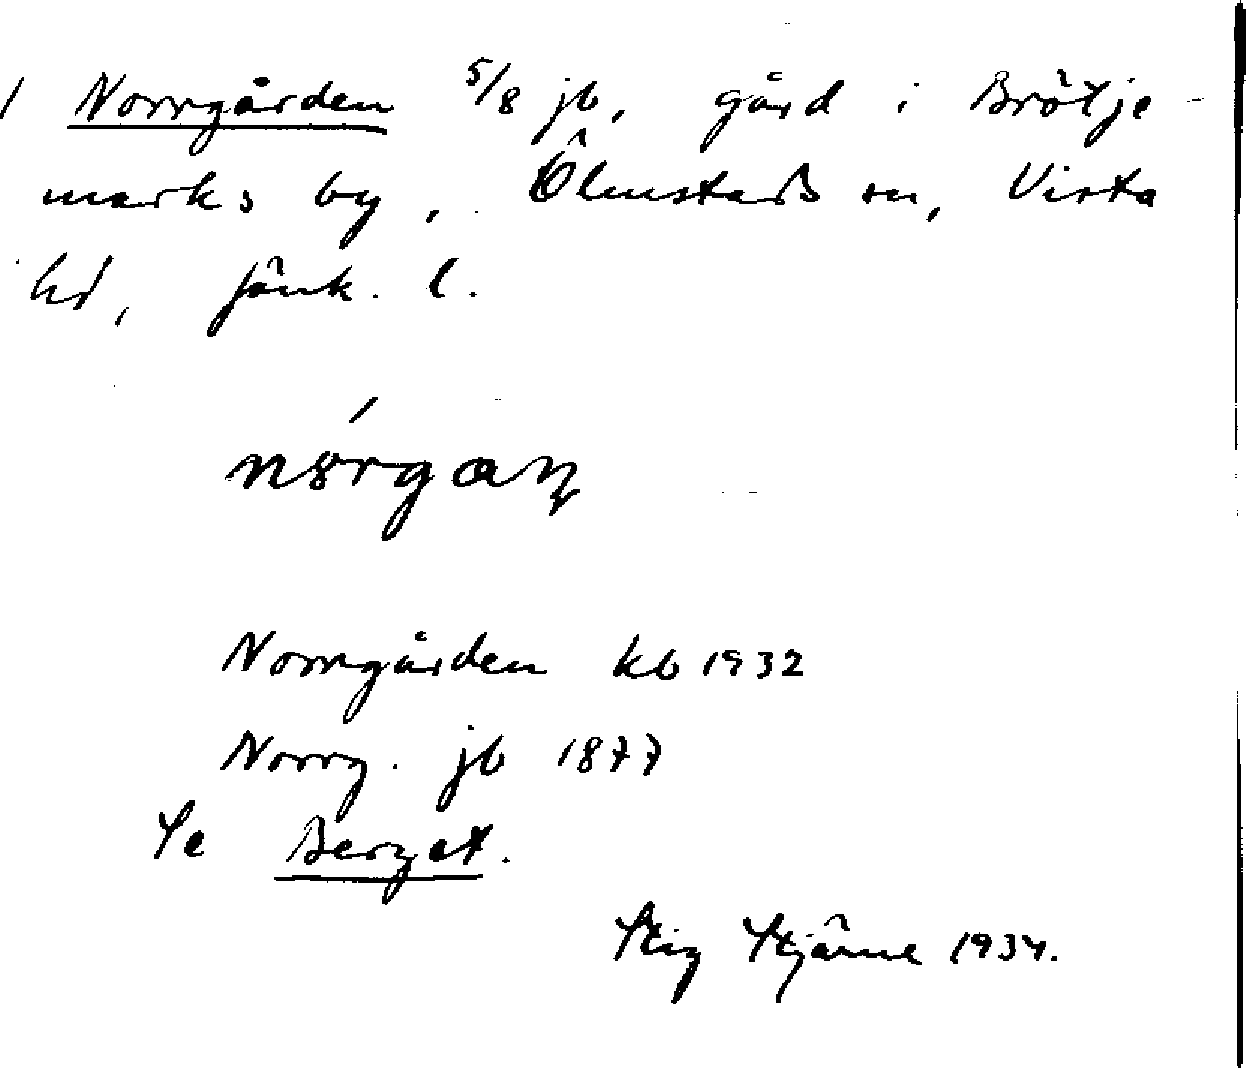 / Norrgården 5/8 jb, gård i Brötje-
marks by, Ölmstads sn, Vista
hd, Jönk. l.
Norrgården kb 1932
Norrg. jb 1877
Se Berget.
Stig Stjärne 1934.